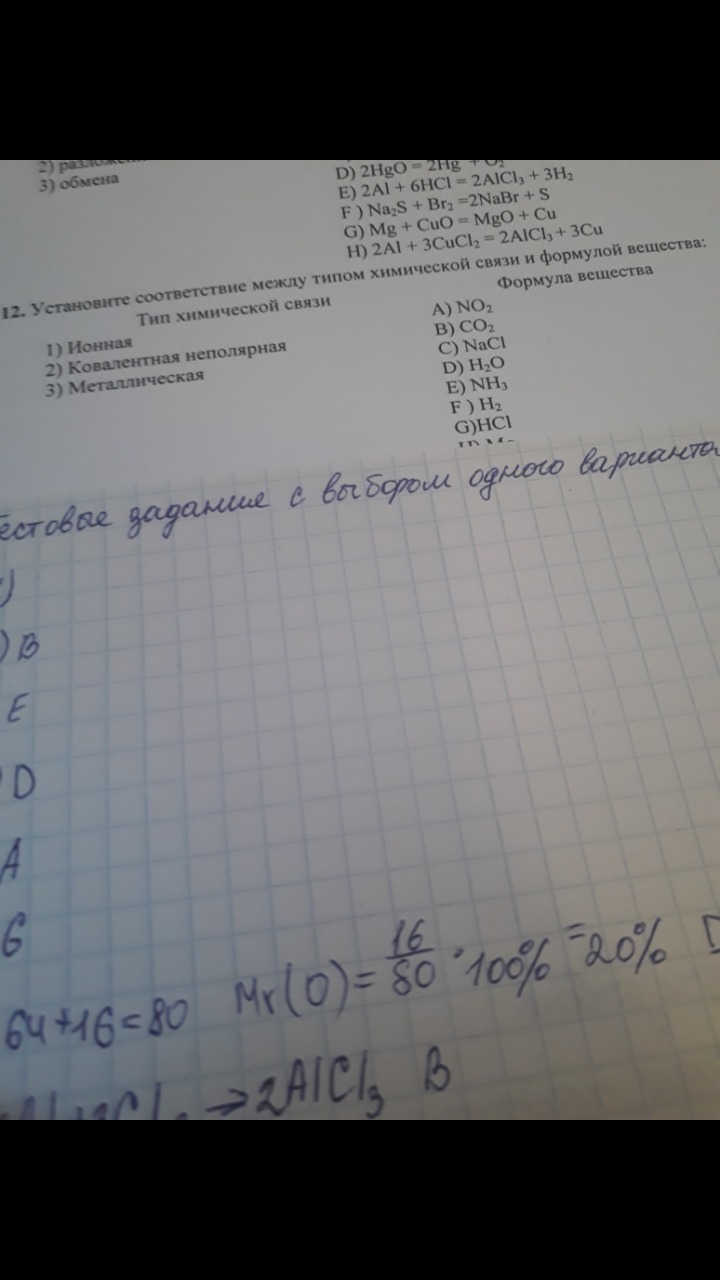 2)
3) обмена
D) 2HgO = 2Hg + O₂
E) 2Al + 6HCl = 2AlCl₃ + 3H₂
F ) Na₂S + Br₂ =2NaBr + S
G) Mg + CuO = MgO + Cu
H) 2Al + 3CuCl₂ = 2AlCl₃ + 3Cu
12. Установите соответствие между типом химической связи и формулой вещества:
Тип химической связи
Формула вещества
1) Ионная
2) Ковалентная неполярная
3) Металлическая
A) NO₂
B) CO₂
C) NaCl
D) H₂O
E) NH₃
F ) H₂
G)HCl
естовые задание с выбором одного варианта
)
) B
E
D
A
6
64+16=80 Mr(O)= 16/80 · 100% =20%
→2AlCl₃ B